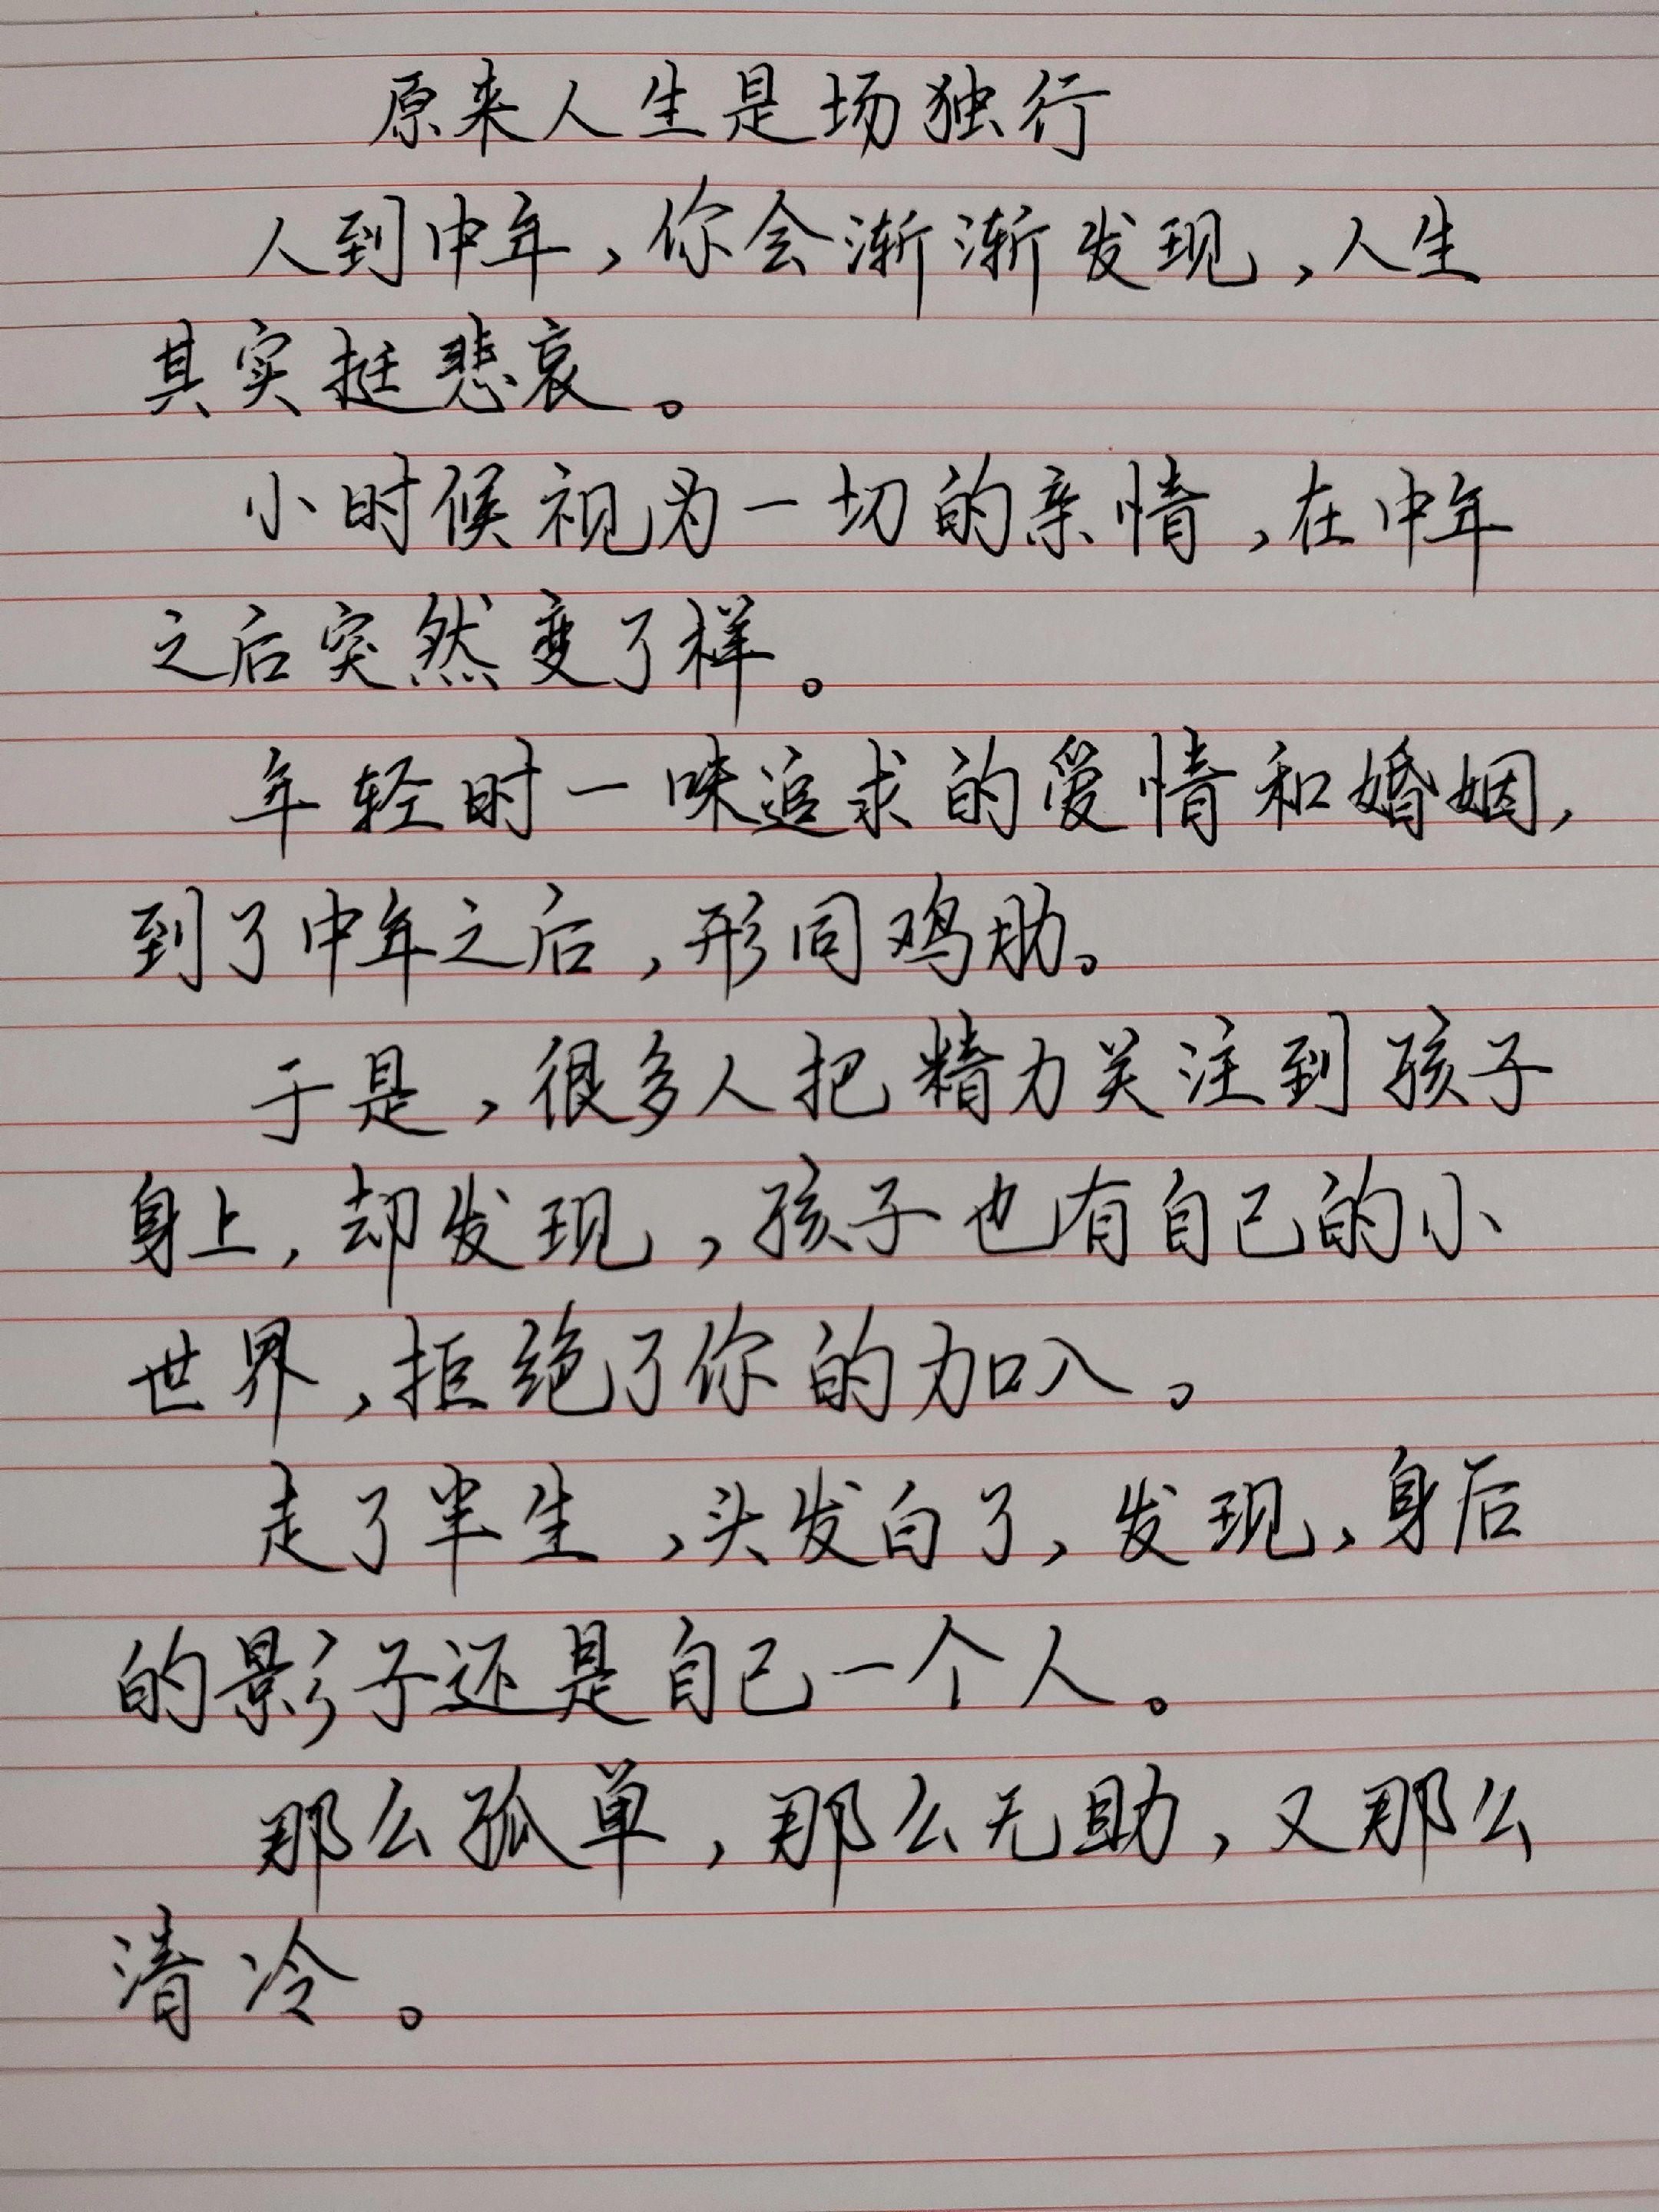 原来人生是场独行
人到中年，你会渐渐发现，人生
其实挺悲哀。
小时候视为一切的亲情，在中年
之后突然变了样。
年轻时一味追求的爱情和婚姻，
到了中年之后，形同鸡肋。
于是，很多人把精力关注到孩子
身上，却发现，孩子也有自己的小
世界，拒绝了你的加入。
走了半生，头发白了，发现，身后
的影子还是自己一个人。
那么孤单，那么无助，又那么
清冷。